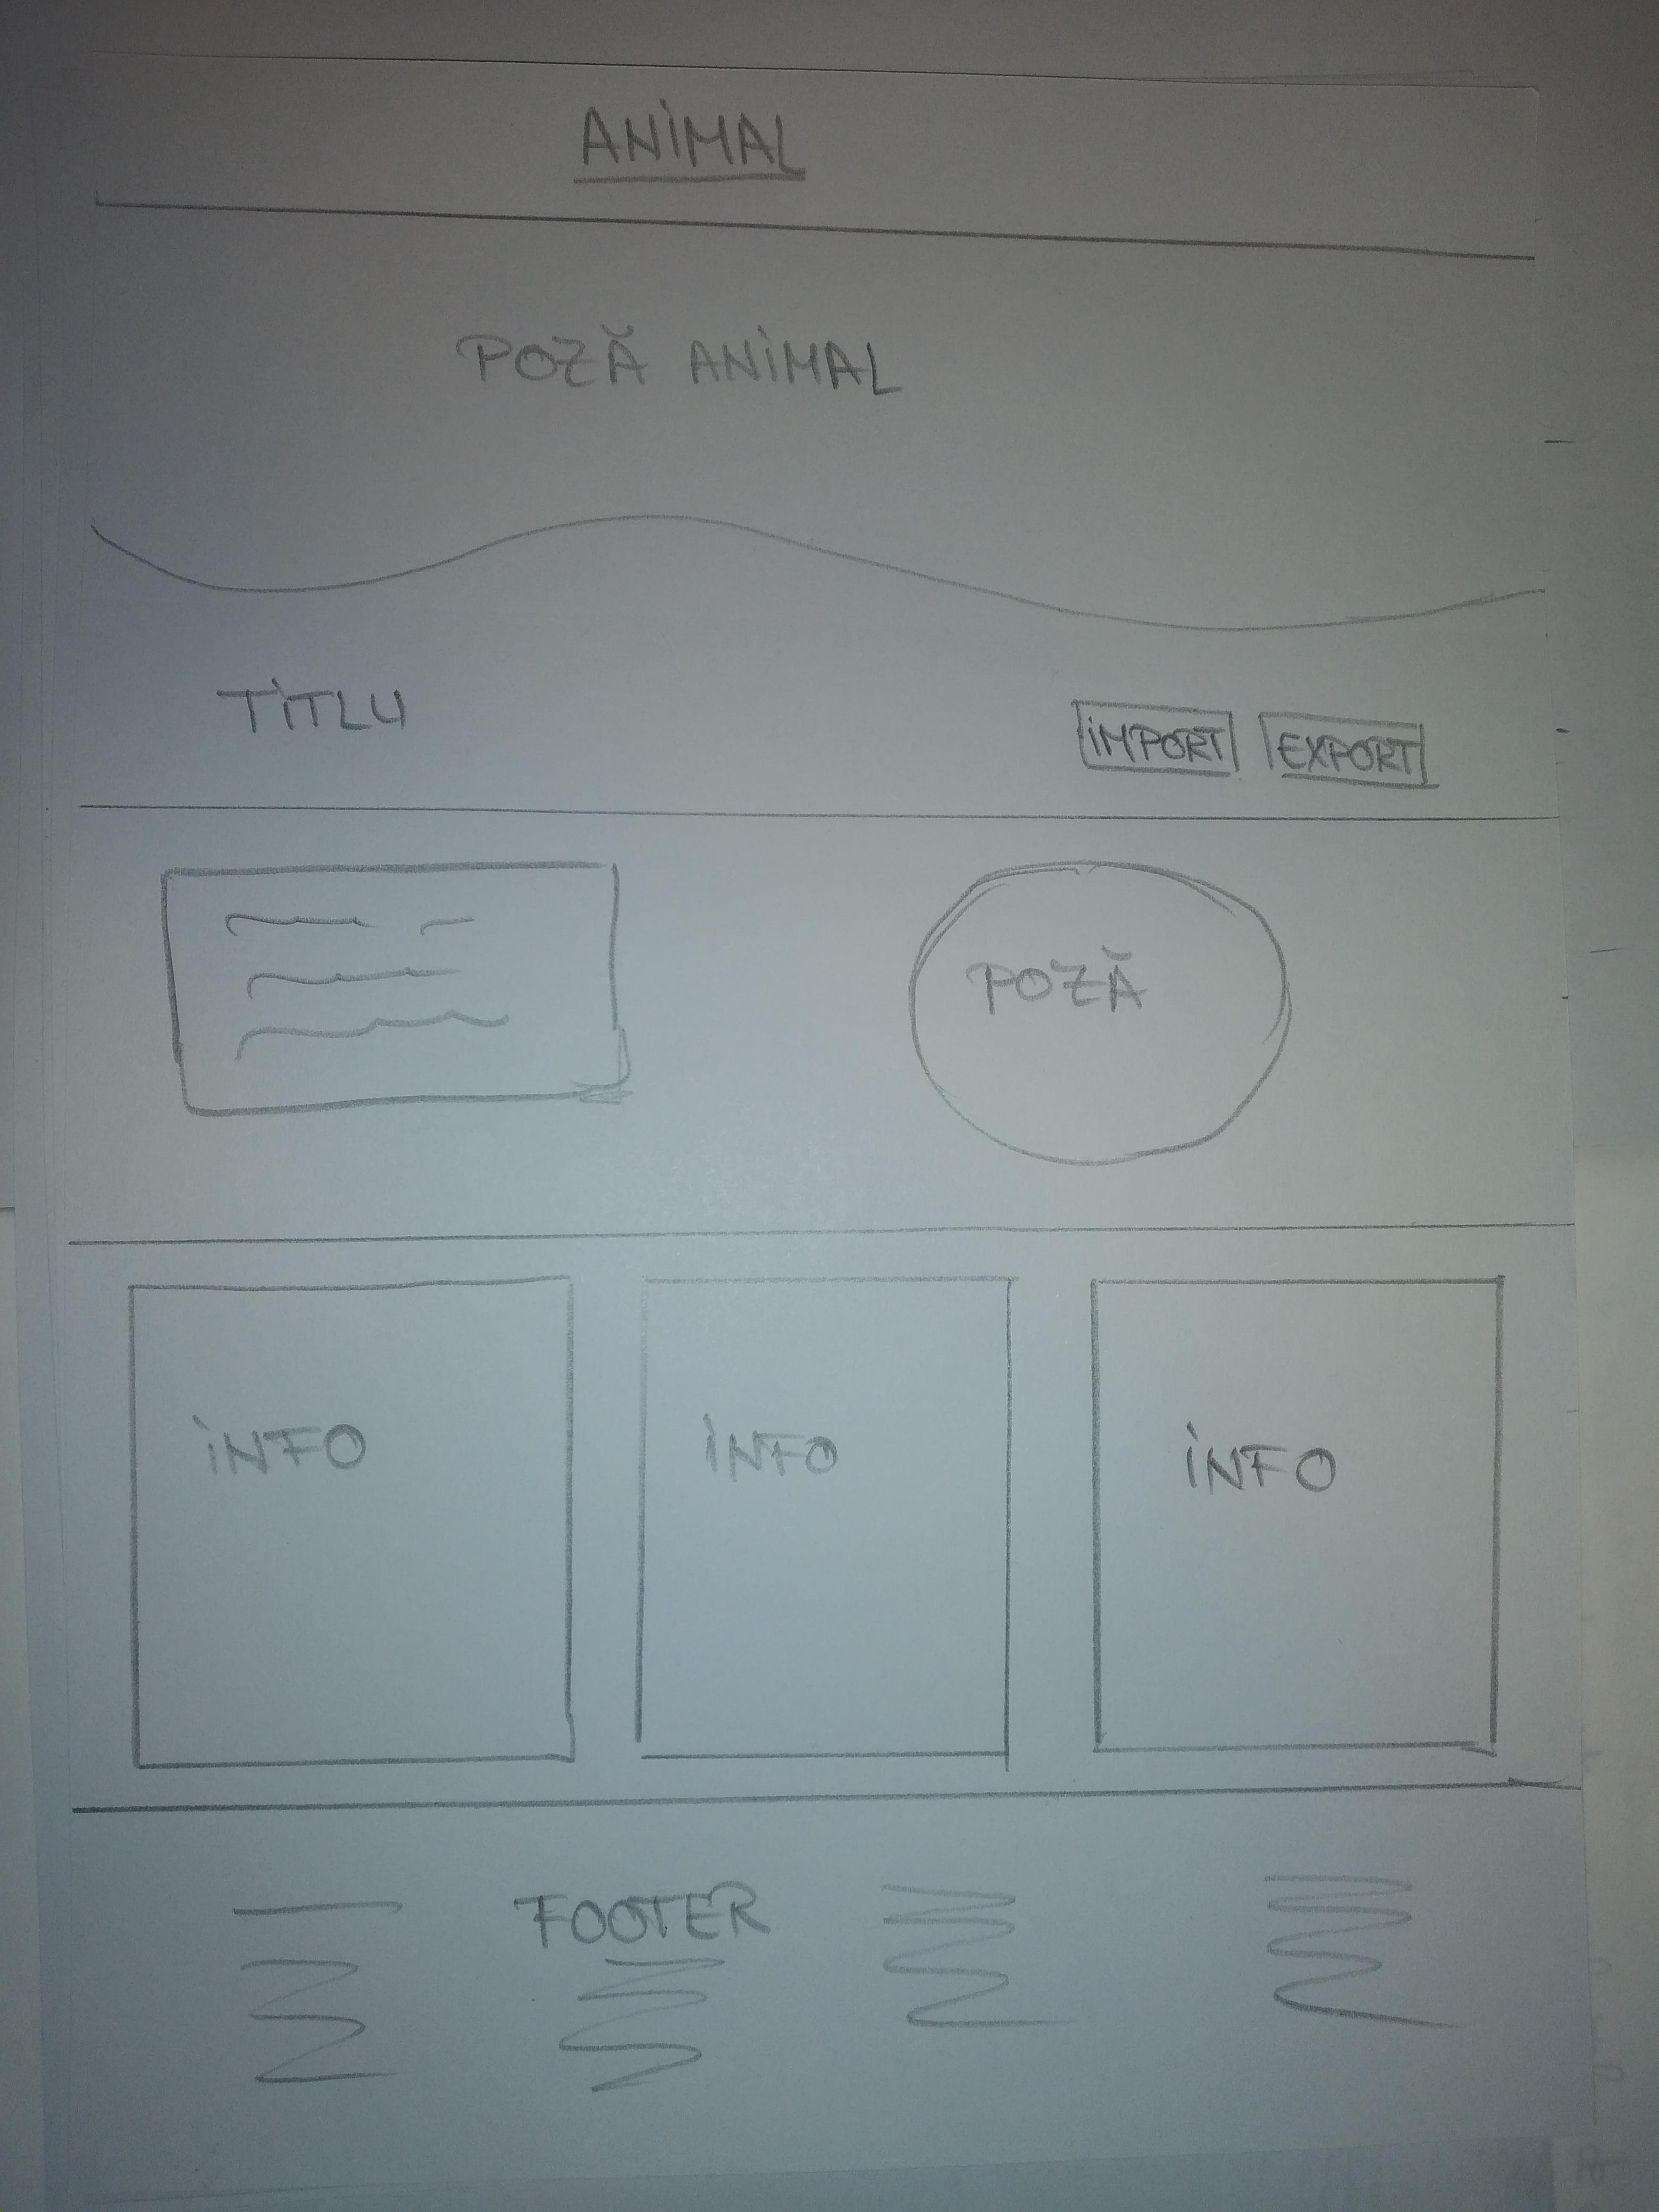 ANIMAL
POZĂ ANIMAL
TITLU
IMPORT EXPORT
POZĂ
INFO INFO INFO
FOOTER